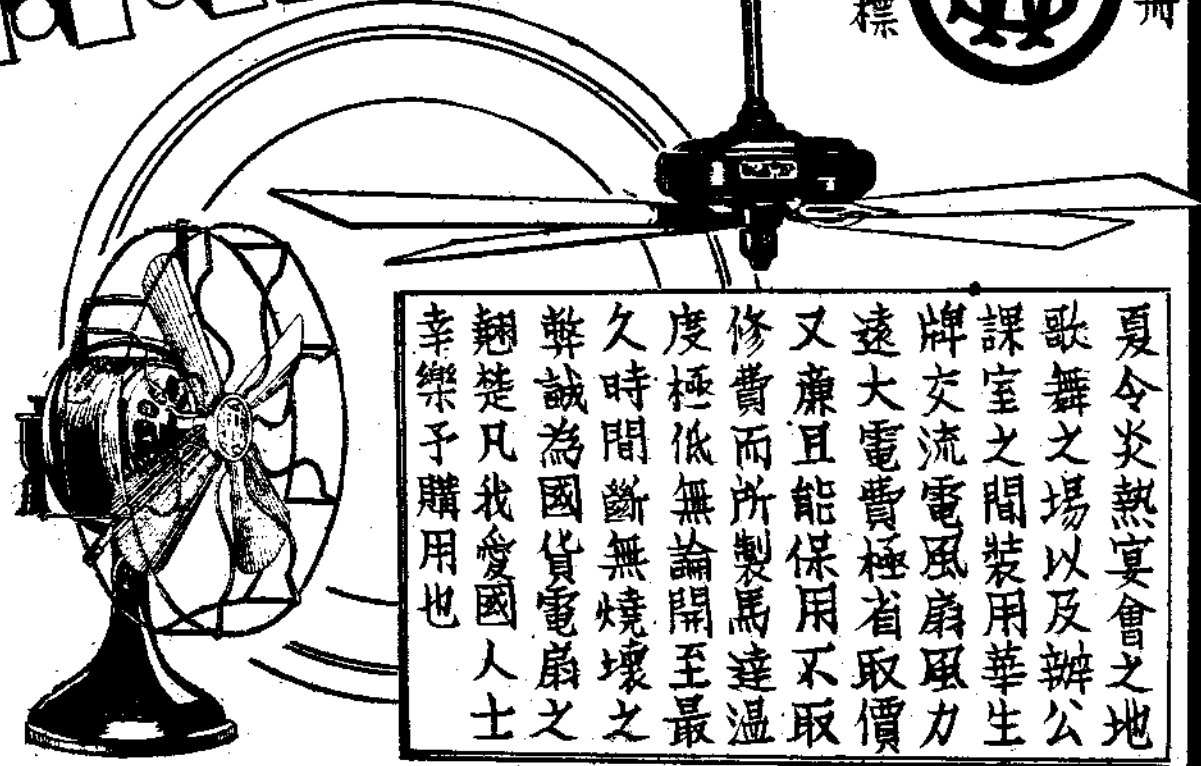 冊
標
夏令炎熱宴會之地
歌舞之場以及辦公
課室之間裝用華生
牌交流電風扇風力
遠大電費極省取價
又廉且能保用不取
修費而所製馬達溫
度極低無論開至最
久時間斷無燒壞之
弊誠為國貨電扇之
翹楚凡我愛國人士
幸樂予購用也